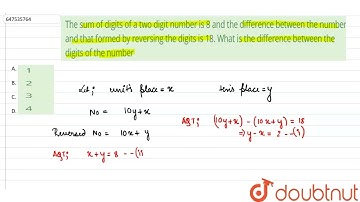 647535764
The sum of digits of a two digit number is 8 and the difference between the number
and that formed by reversing the digits is 18. What is the difference between the
digits of the number
A. 1
B. 2
C. 3
D. 4
Let; unit's place = x ten's place = y
No = 10y+x
Reversed No = 10x + y
AQT; x+y = 8 --(i)
AQT; (10y+x) - (10x+y) = 18
⇒ y-x = 2 --(i)
doubtnut